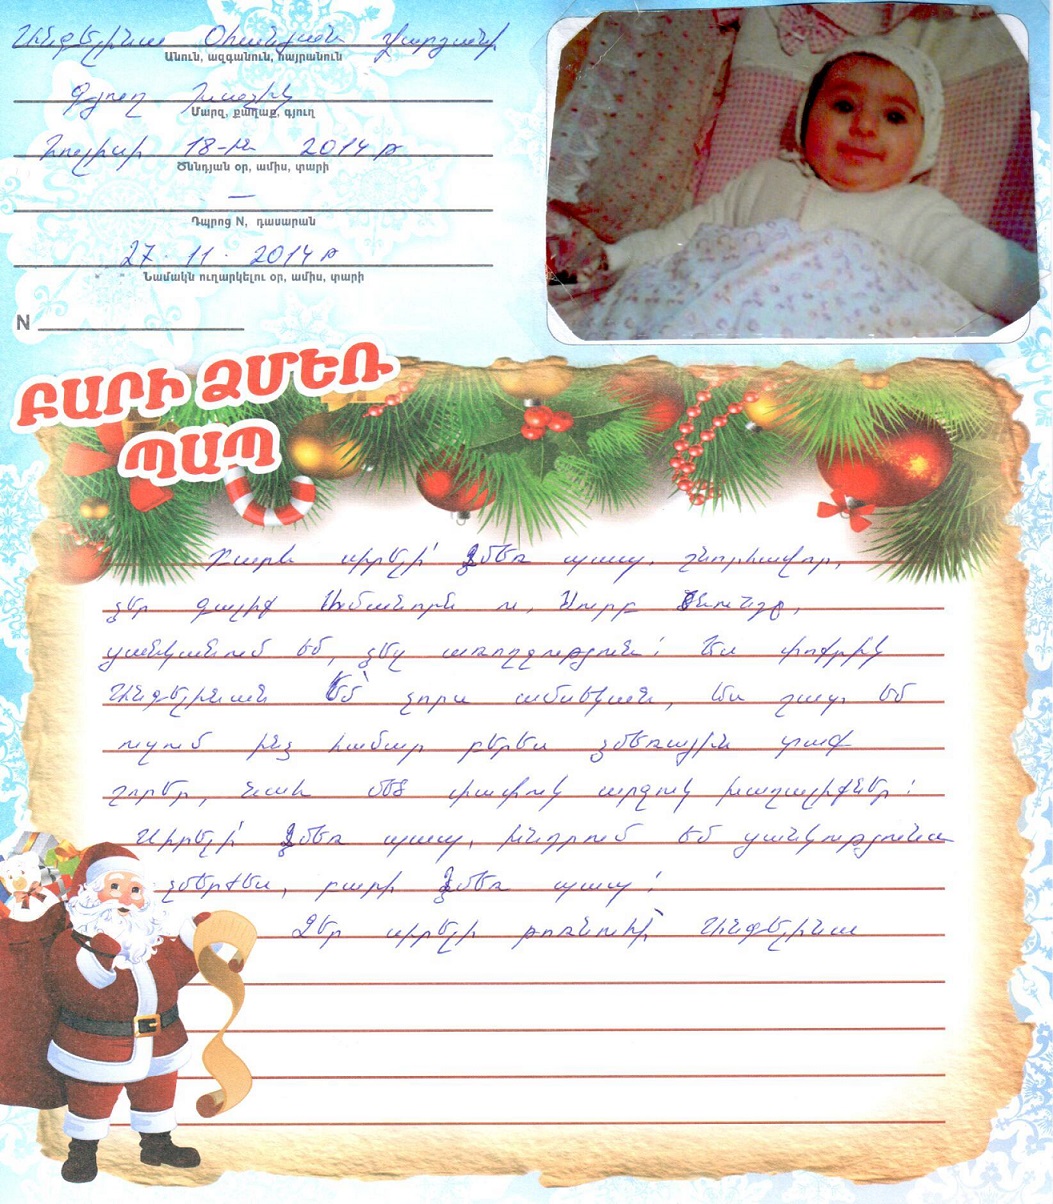 Անգելինա Օհանյան Վարդանի
Անուն, ազգանուն, հայրանուն
Գյուղ Խաչիկ
Մարզ, քաղաք, գյուղ
Հուլիսի 18-ին 2014թ
Ծննդյան օր, ամիս, տարի
—
Դպրոց N, դասարան
27. 11. 2014թ
Նամակն ուղարկելու օր, ամիս, տարի
N
ԲԱՐԻ ՁՄԵՌ
ՊԱՊ
Բարև սիրելի՛ Ձմեռ պապ, շնորհավոր,
ձեր գալիք Ամանորն ու, Սուրբ Ծնունդը,
ցանկանում եմ, ձեզ առողջություն: Ես փոքրիկ
Անգելինան եմ՝ չորս ամսեկան, ես շատ եմ
ուզում ինձ համար բերես ձմեռային տաք
շորեր, նաև մեծ փափուկ արջուկ խաղալիքներ:
Սիրելի՛ Ձմեռ պապ, խնդրում եմ ցանկությունս
չմերժես, բարի Ձմեռ պապ:
Ձեր սիրելի թոռնուհի՝ Անգելինա